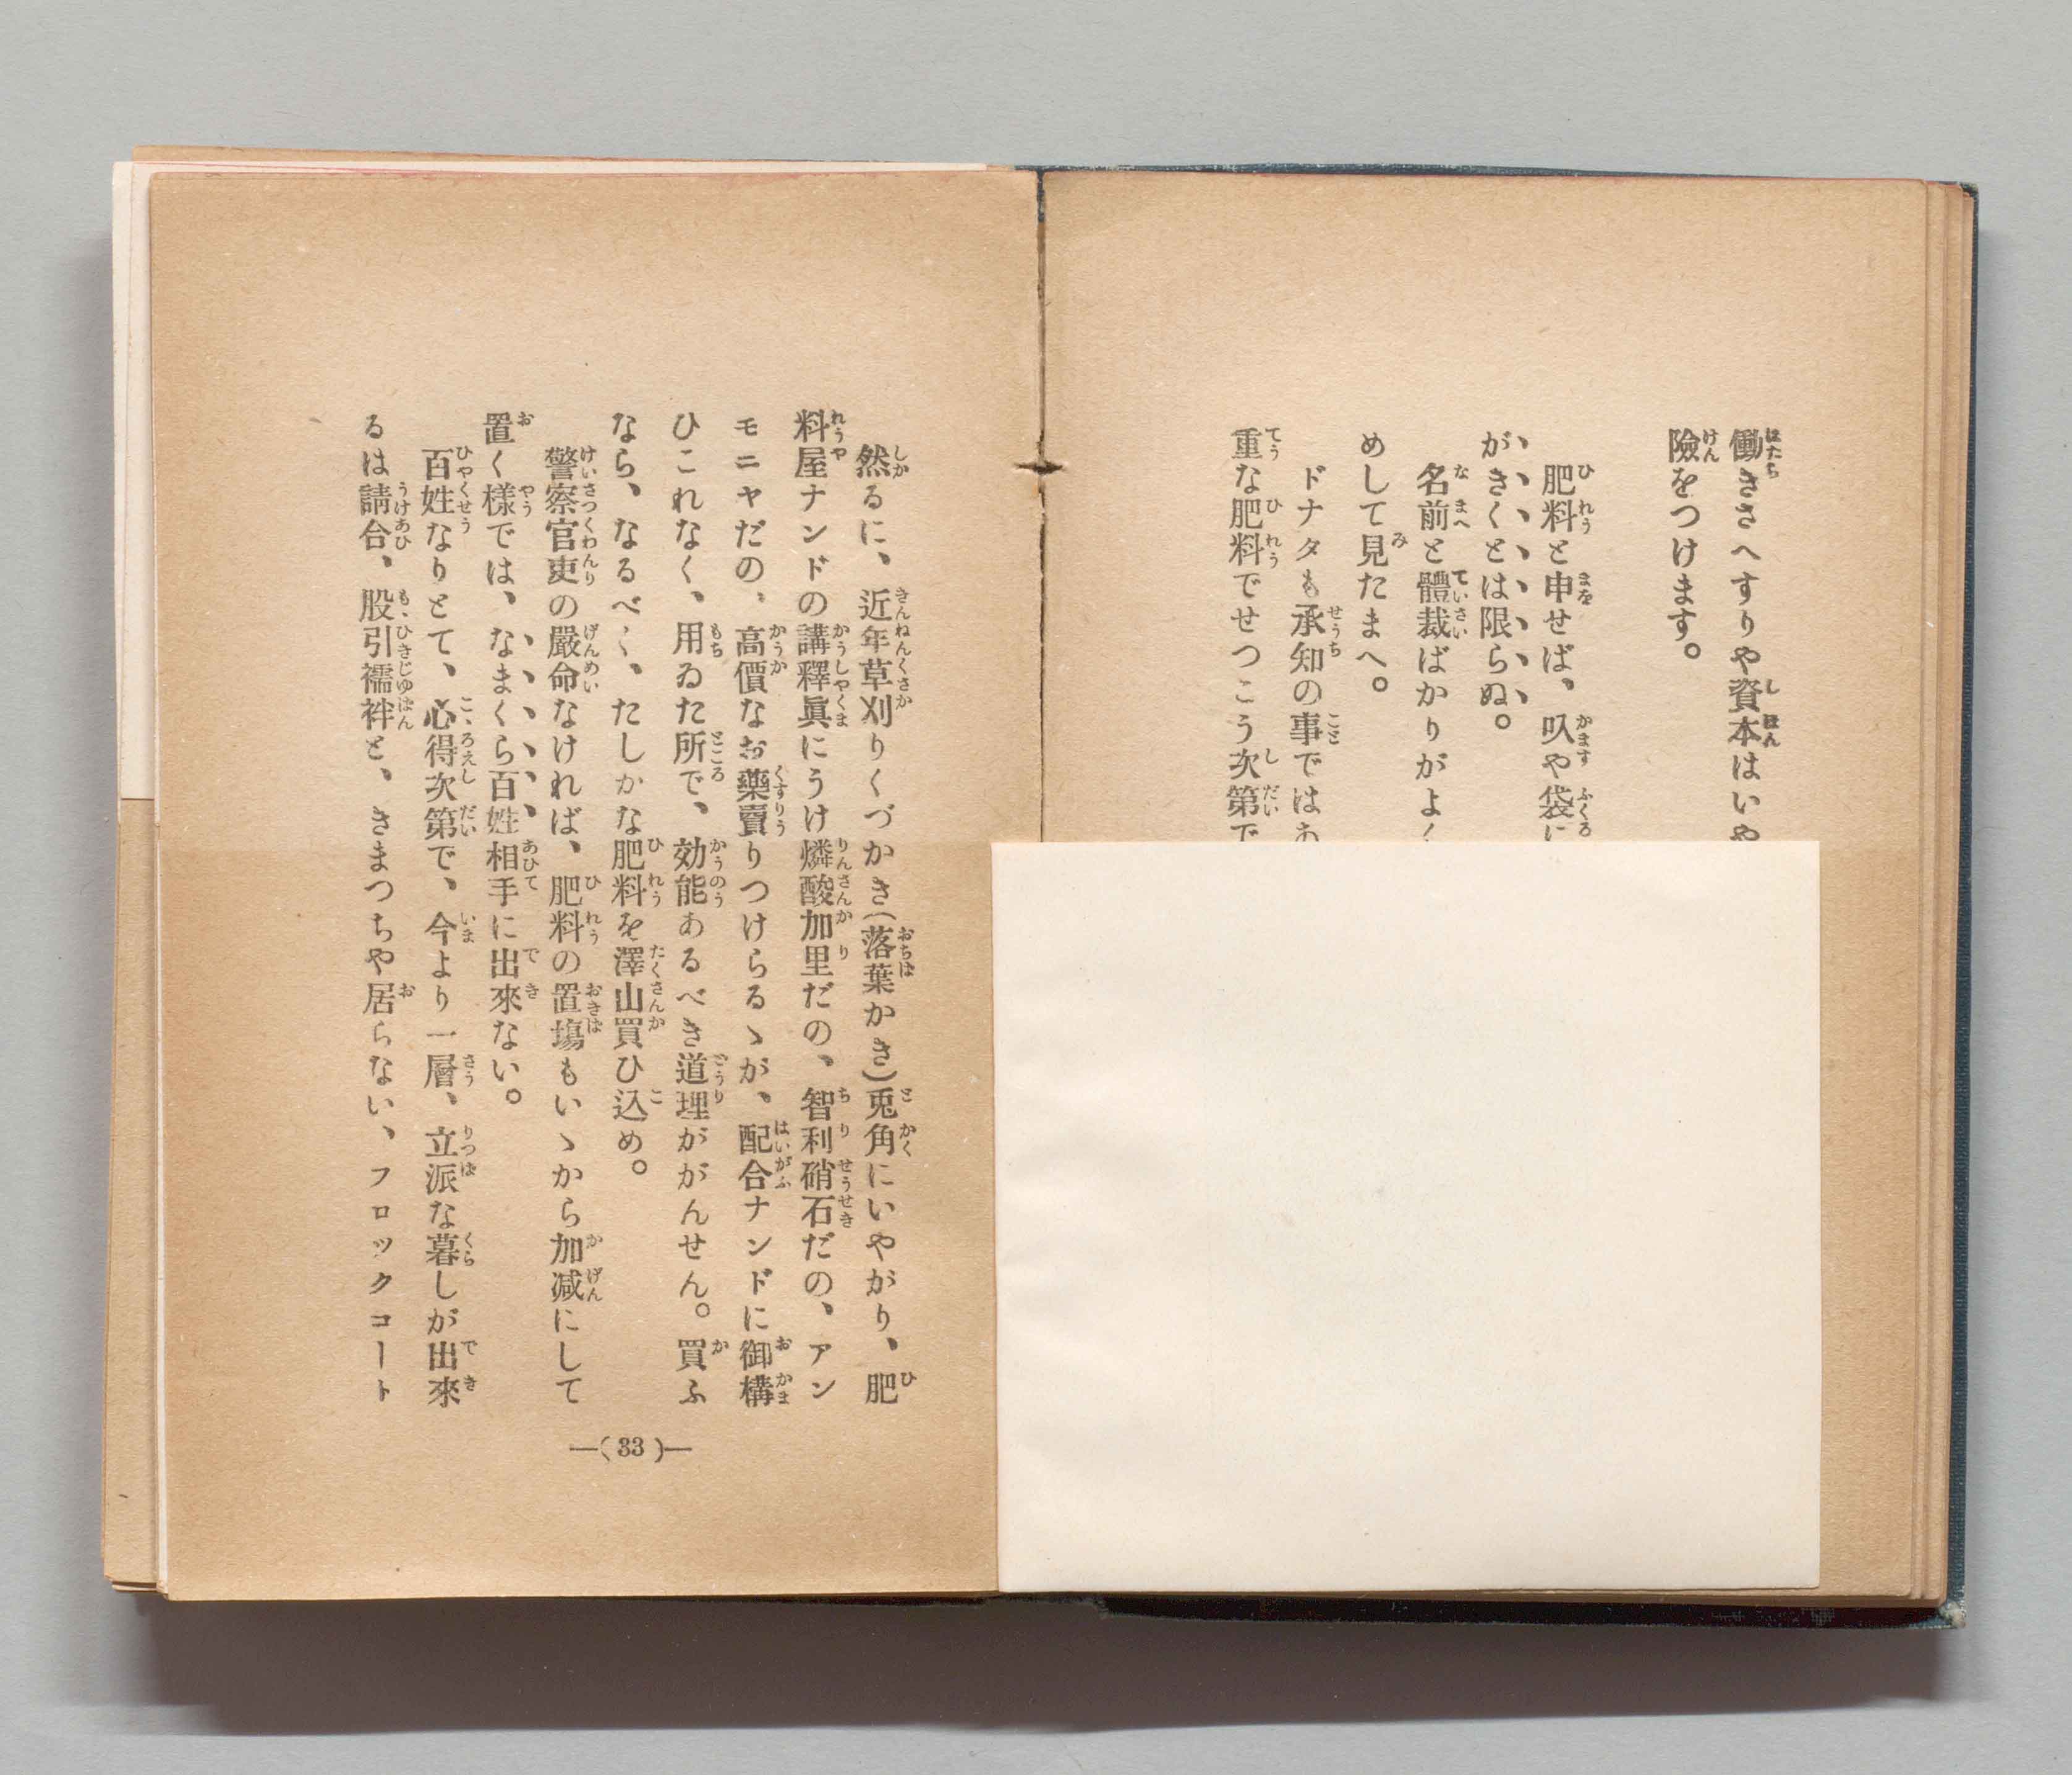 働きさへすりや資本はいや
險をつけます。
肥料と申せば、叺や袋に
がきくとは限らぬ。
名前と體裁ばかりがよく
めして見たまへ。
ドナタも承知の事ではあ
重な肥料でせつこう次第で
然るに、近年草刈りくづかき(落葉かき)兎角にいやがり、肥
料屋ナンドの講釋眞にうけ燐酸加里だの、智利硝石だの、アン
モニヤだの、高價なお藥賣りつけらるゝが、配合ナンドに御構
ひこれなく、用ゐた所で、効能あるべき道理ががんせん。買ふ
なら、なるべく、たしかな肥料を澤山買ひ込め。
警察官吏の嚴命なければ、肥料の置塲もいゝから加減にして
置く樣では、なまくら百姓相手に出來ない。
百姓なりとて、心得次第で、今より一層、立派な暮しが出來
るは請合、股引襦袢と、きまつちや居らない、フロックコート
—(33)—